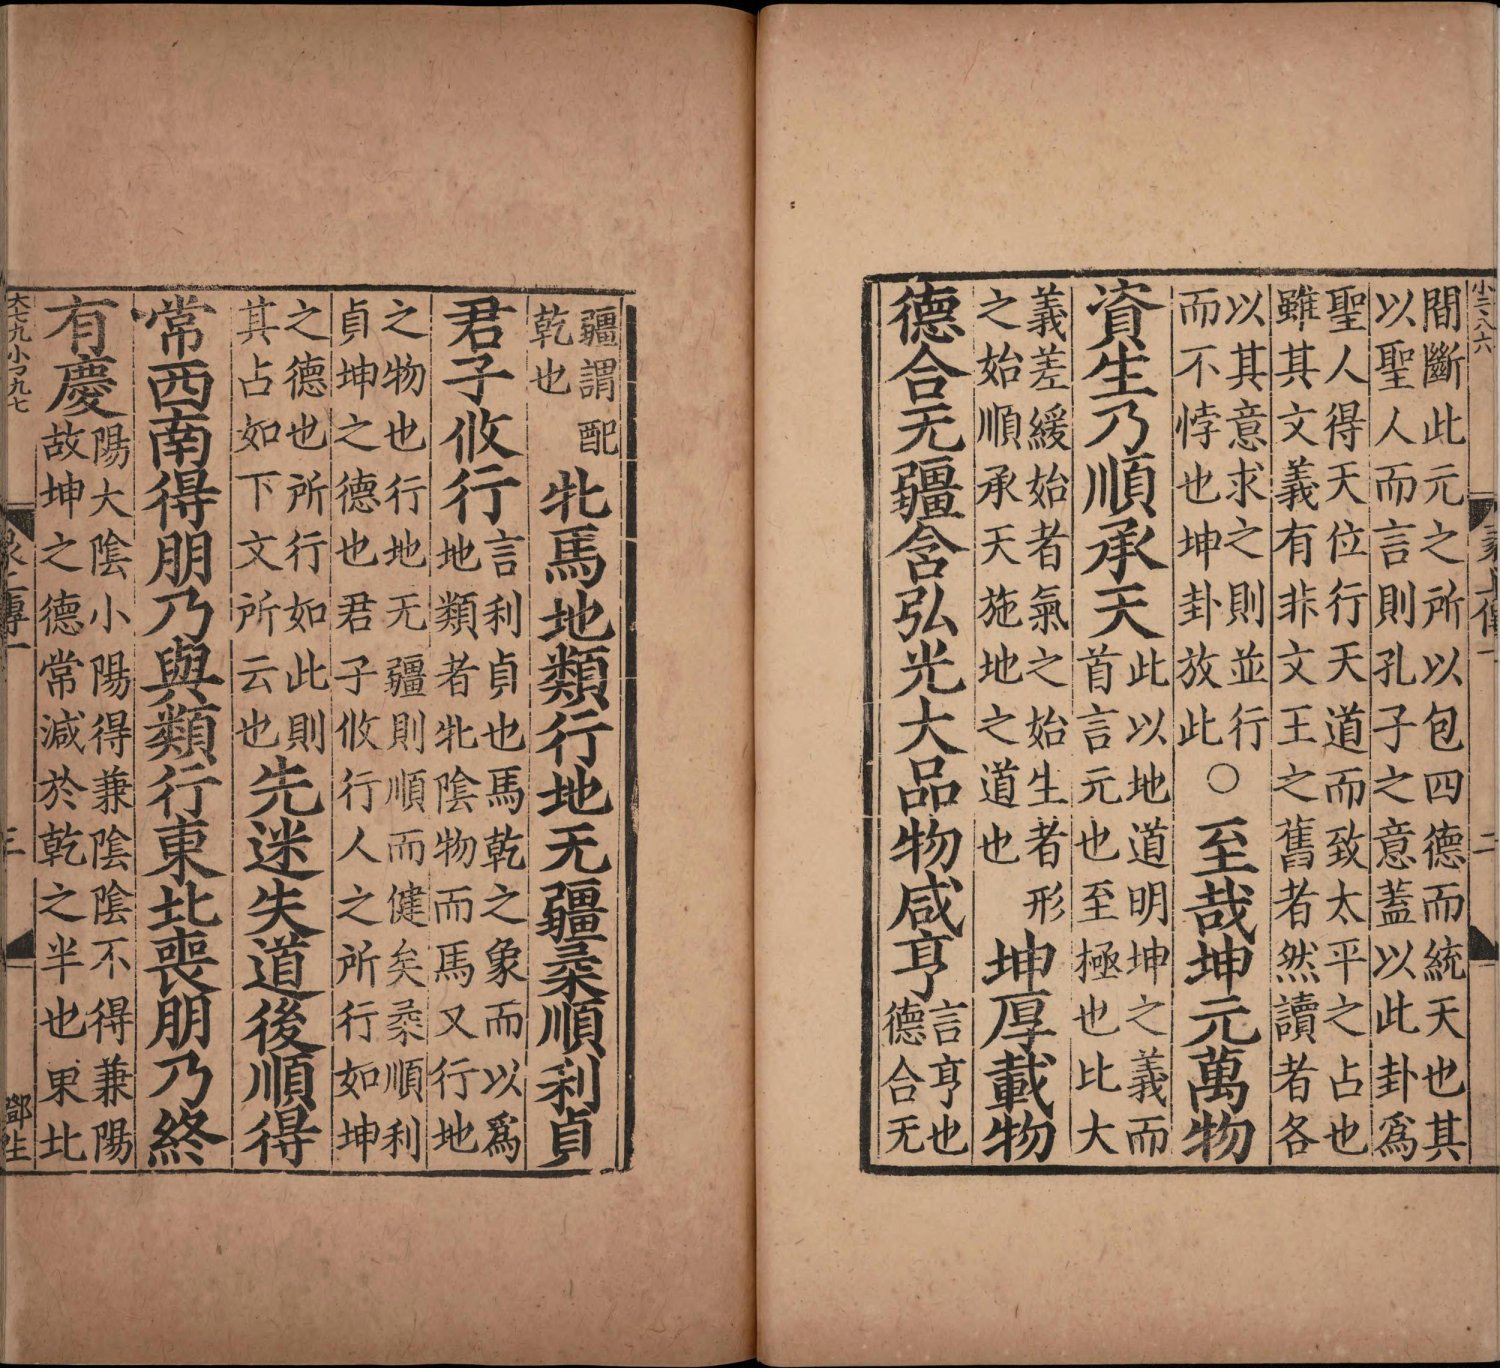 小三八六
二
間斷此元之所以包四德而統天也其
以聖人而言則孔子之意蓋以此卦爲
聖人得天位行天道而致太平之占也
雖其文義有非文王之舊者然讀者各
以其意求之則並行
而不悖也坤卦放此
○至哉坤元萬物
資生乃順承天
此以地道明坤之義而
首言元也至極也比大
義差緩始者氣之始生者形
之始順承天施地之道也
坤厚載物
德合无疆含弘光大品物咸亨
言亨也
德合无
疆謂配
乾也
牝馬地類行地无疆柔順利貞
君子攸行
言利貞也馬乾之象而以爲
地類者牝陰物而馬又行地
之物也行地无疆則順而健矣柔順利
貞坤之德也君子攸行人之所行如坤
之德也所行如此則
其占如下文所云也
先迷失道後順得
常西南得朋乃與類行東北喪朋乃終
有慶
陽大陰小陽得兼陰陰不得兼陽
故坤之德常減於乾之半也東北
三
鄧生